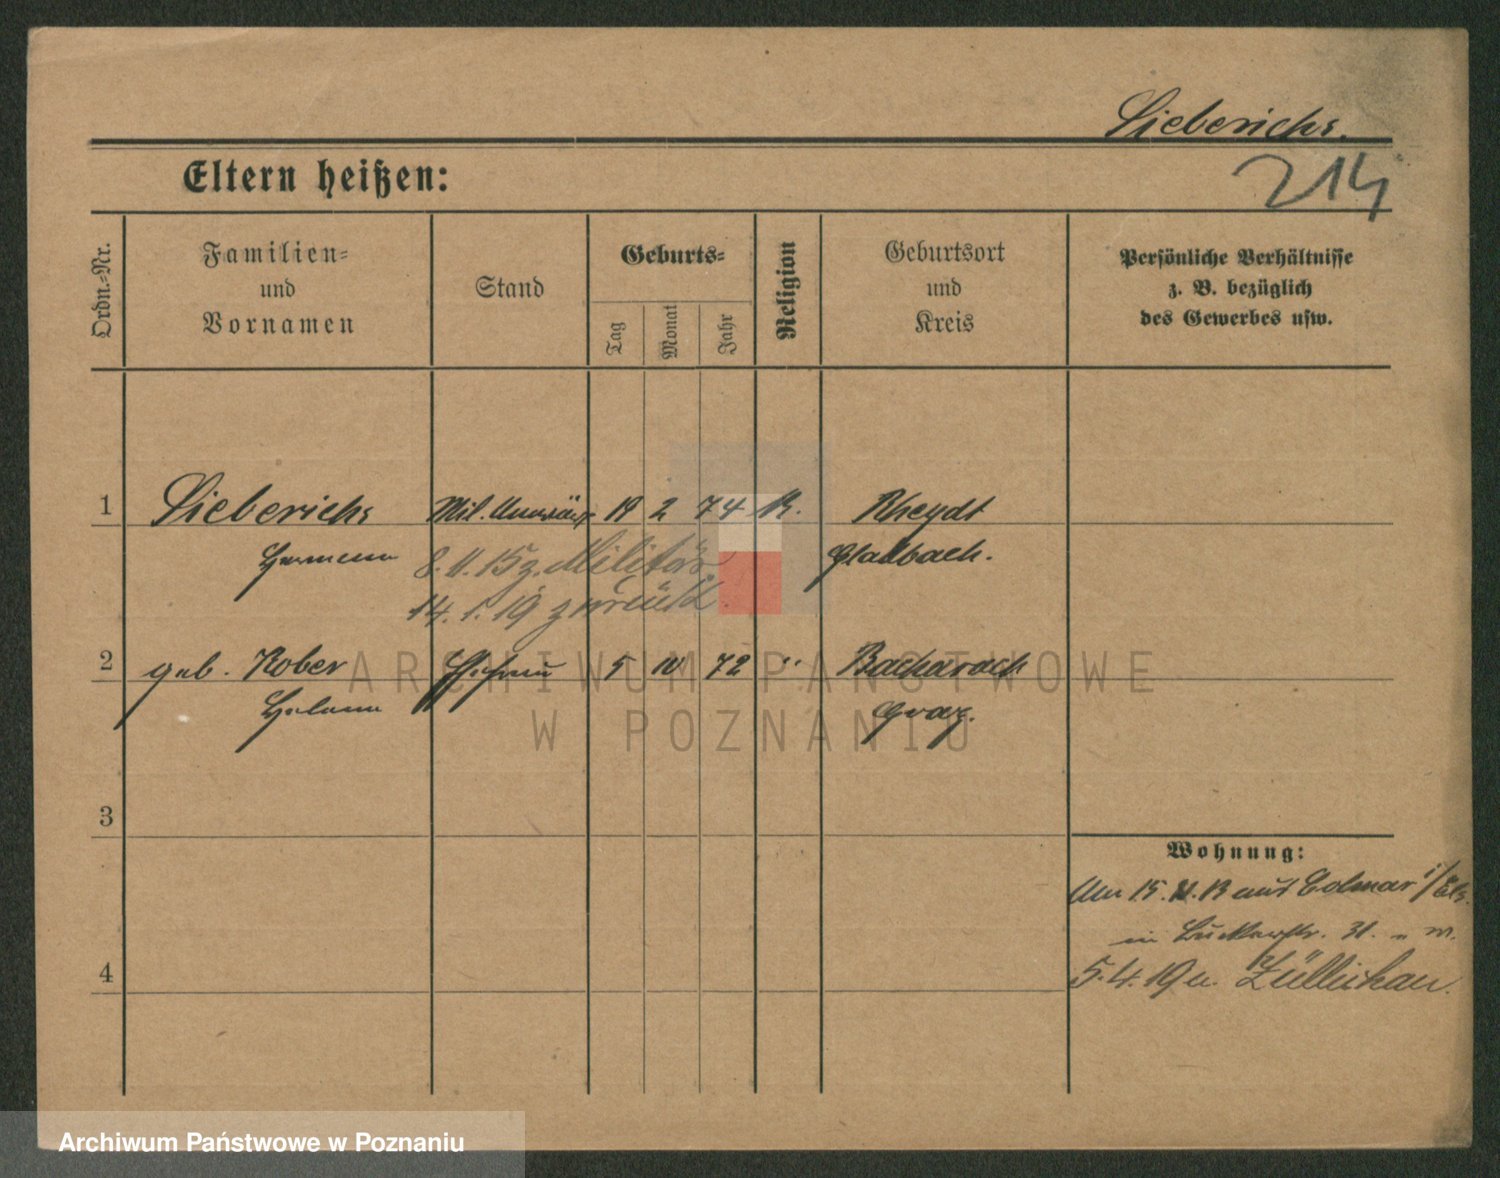 Lieberichs.
214
Eltern heißen:
Ordn.-Nr.
Familien-
und
Vornamen
Stand
Geburts-
Tag
Monat
Jahr
Religion
Geburtsort
und
Kreis
Persönliche Verhältnisse
z. B. bezüglich
des Gewerbes usw.
1 Lieberichs Mil. Anwärt 19 2 74 K. Rheydt
Hermann Gladbach.
8. 11. 15 z. Militär
14. 1. 19 zurück.
2 geb. Kober Ehefrau 5 10 72 " Bacharach
Helene Goar.
3
Wohnung:
Am 15. 11. 13 aus Colmar i/Els.
in 31.
4
5. 4. 19 n. Züllichau.
ARCHIWUM PAŃSTWOWE
W POZNANIU
Archiwum Państwowe w Poznaniu